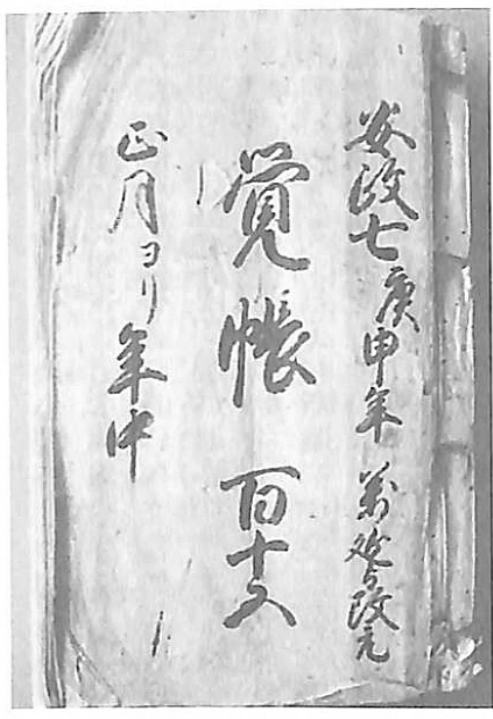 安政七庚申年 萬延与改元
覚帳 百十八
正月ヨリ年中